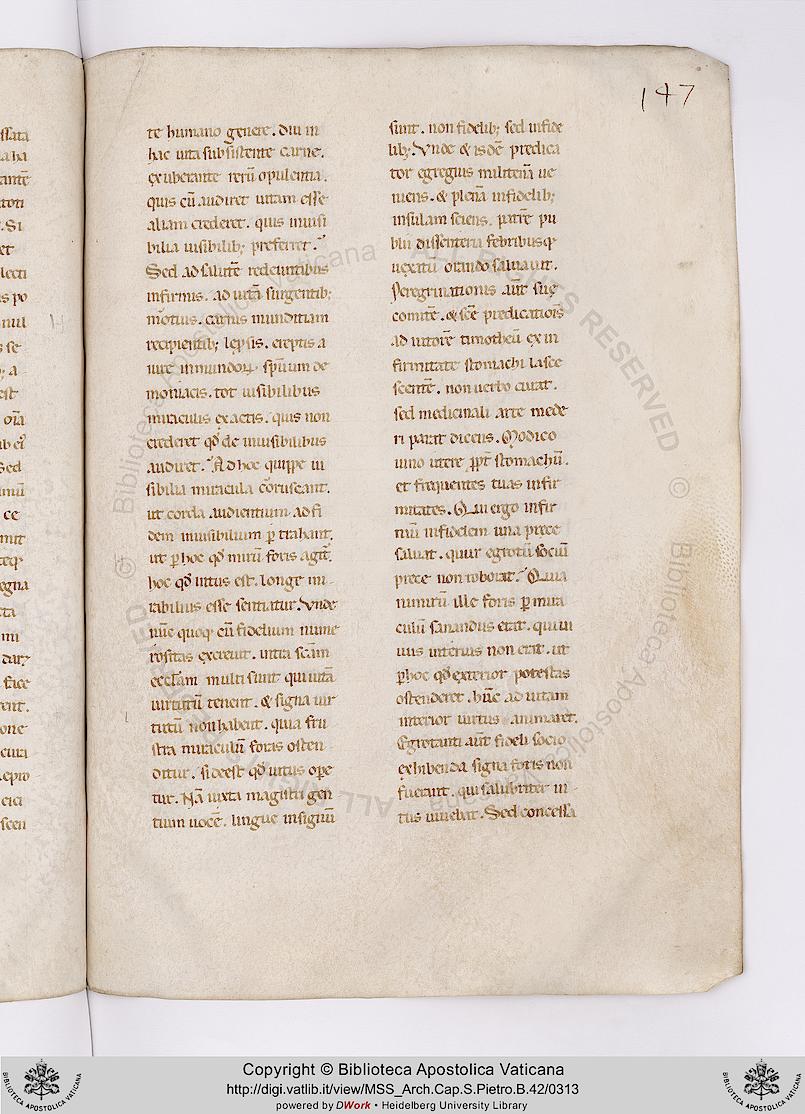 147
te humano genere. diu in
hac uita subsistente carne.
exuberante rerū opulentia.
quis cū audiret uitam esse
aliam crederet. quis inuisi
bilia uisibilib; preferret.
Sed ad salutē redeuntibus
infirmis. ad uitā surgentib;
mortuis. carnis munditiam
recipientib; lepsis. ereptis a
iure inmundoꝝ spirituum de
moniacis. tot uisibilibus
miraculis exactis. quis non
crederet qđ de inuisibilibus
audiret. Ad hoc quippe ui
sibilia miracula coruscant.
ut corda audientium ad fi
dem inuisibilium ꝑtrahant.
ut ꝑ hoc qđ mirū foris agit̄.
hoc qđ intus est. longe mi
rabilius esse sentiatur. Vnde
nūc quoq; cū fidelium nume
rositas excreuit. intra scām
ecclām multi sunt qui uitā
uirtutū tenent. & signa uir
tutū non habent. quia fru
stra miraculū foras osten
ditur. si deest qđ intus ope
tur. Nā iuxta magistri gen
tium uocē. lingue insignum
sunt. non fidelib; sed infide
lib; Vnde & isdē predica
tor egregius militenā ue
niens. & plenā infidelib;
insulam sciens. patrē pu
blii dissenteria febribusq;
uexatū orando saluauit.
Peregrinationis aūt sue
comitē. & scē predicationis
adiutorē timotheū ex in
firmitate stomachi lasce
scentē. non uerbo curat.
sed medicinali arte mede
ri parat dicens. Modico
uino utere ꝓpt̄ stomachū.
et frequentes tuas infir
mitates. Qui ergo infir
mū infidelem una prece
saluat. quur egrotū sociū
prece non roborat. Quia
nimirū ille foris ꝑ mira
culū sanandus erat. qui ui
uus interius non erat. ut
ꝑ hoc qđ exterior potestas
ostenderet. hūc ad uitam
interior uirtus animaret.
Egrotanti aūt fideli socio
exhibenda signa foris non
fuerant. qui salubriter in
tus uiuebat. Sed concessa
Copyright © Biblioteca Apostolica Vaticana
http://digi.vatlib.it/view/MSS_Arch.Cap.S.Pietro.B.42/0313
powered by DWork • Heidelberg University Library